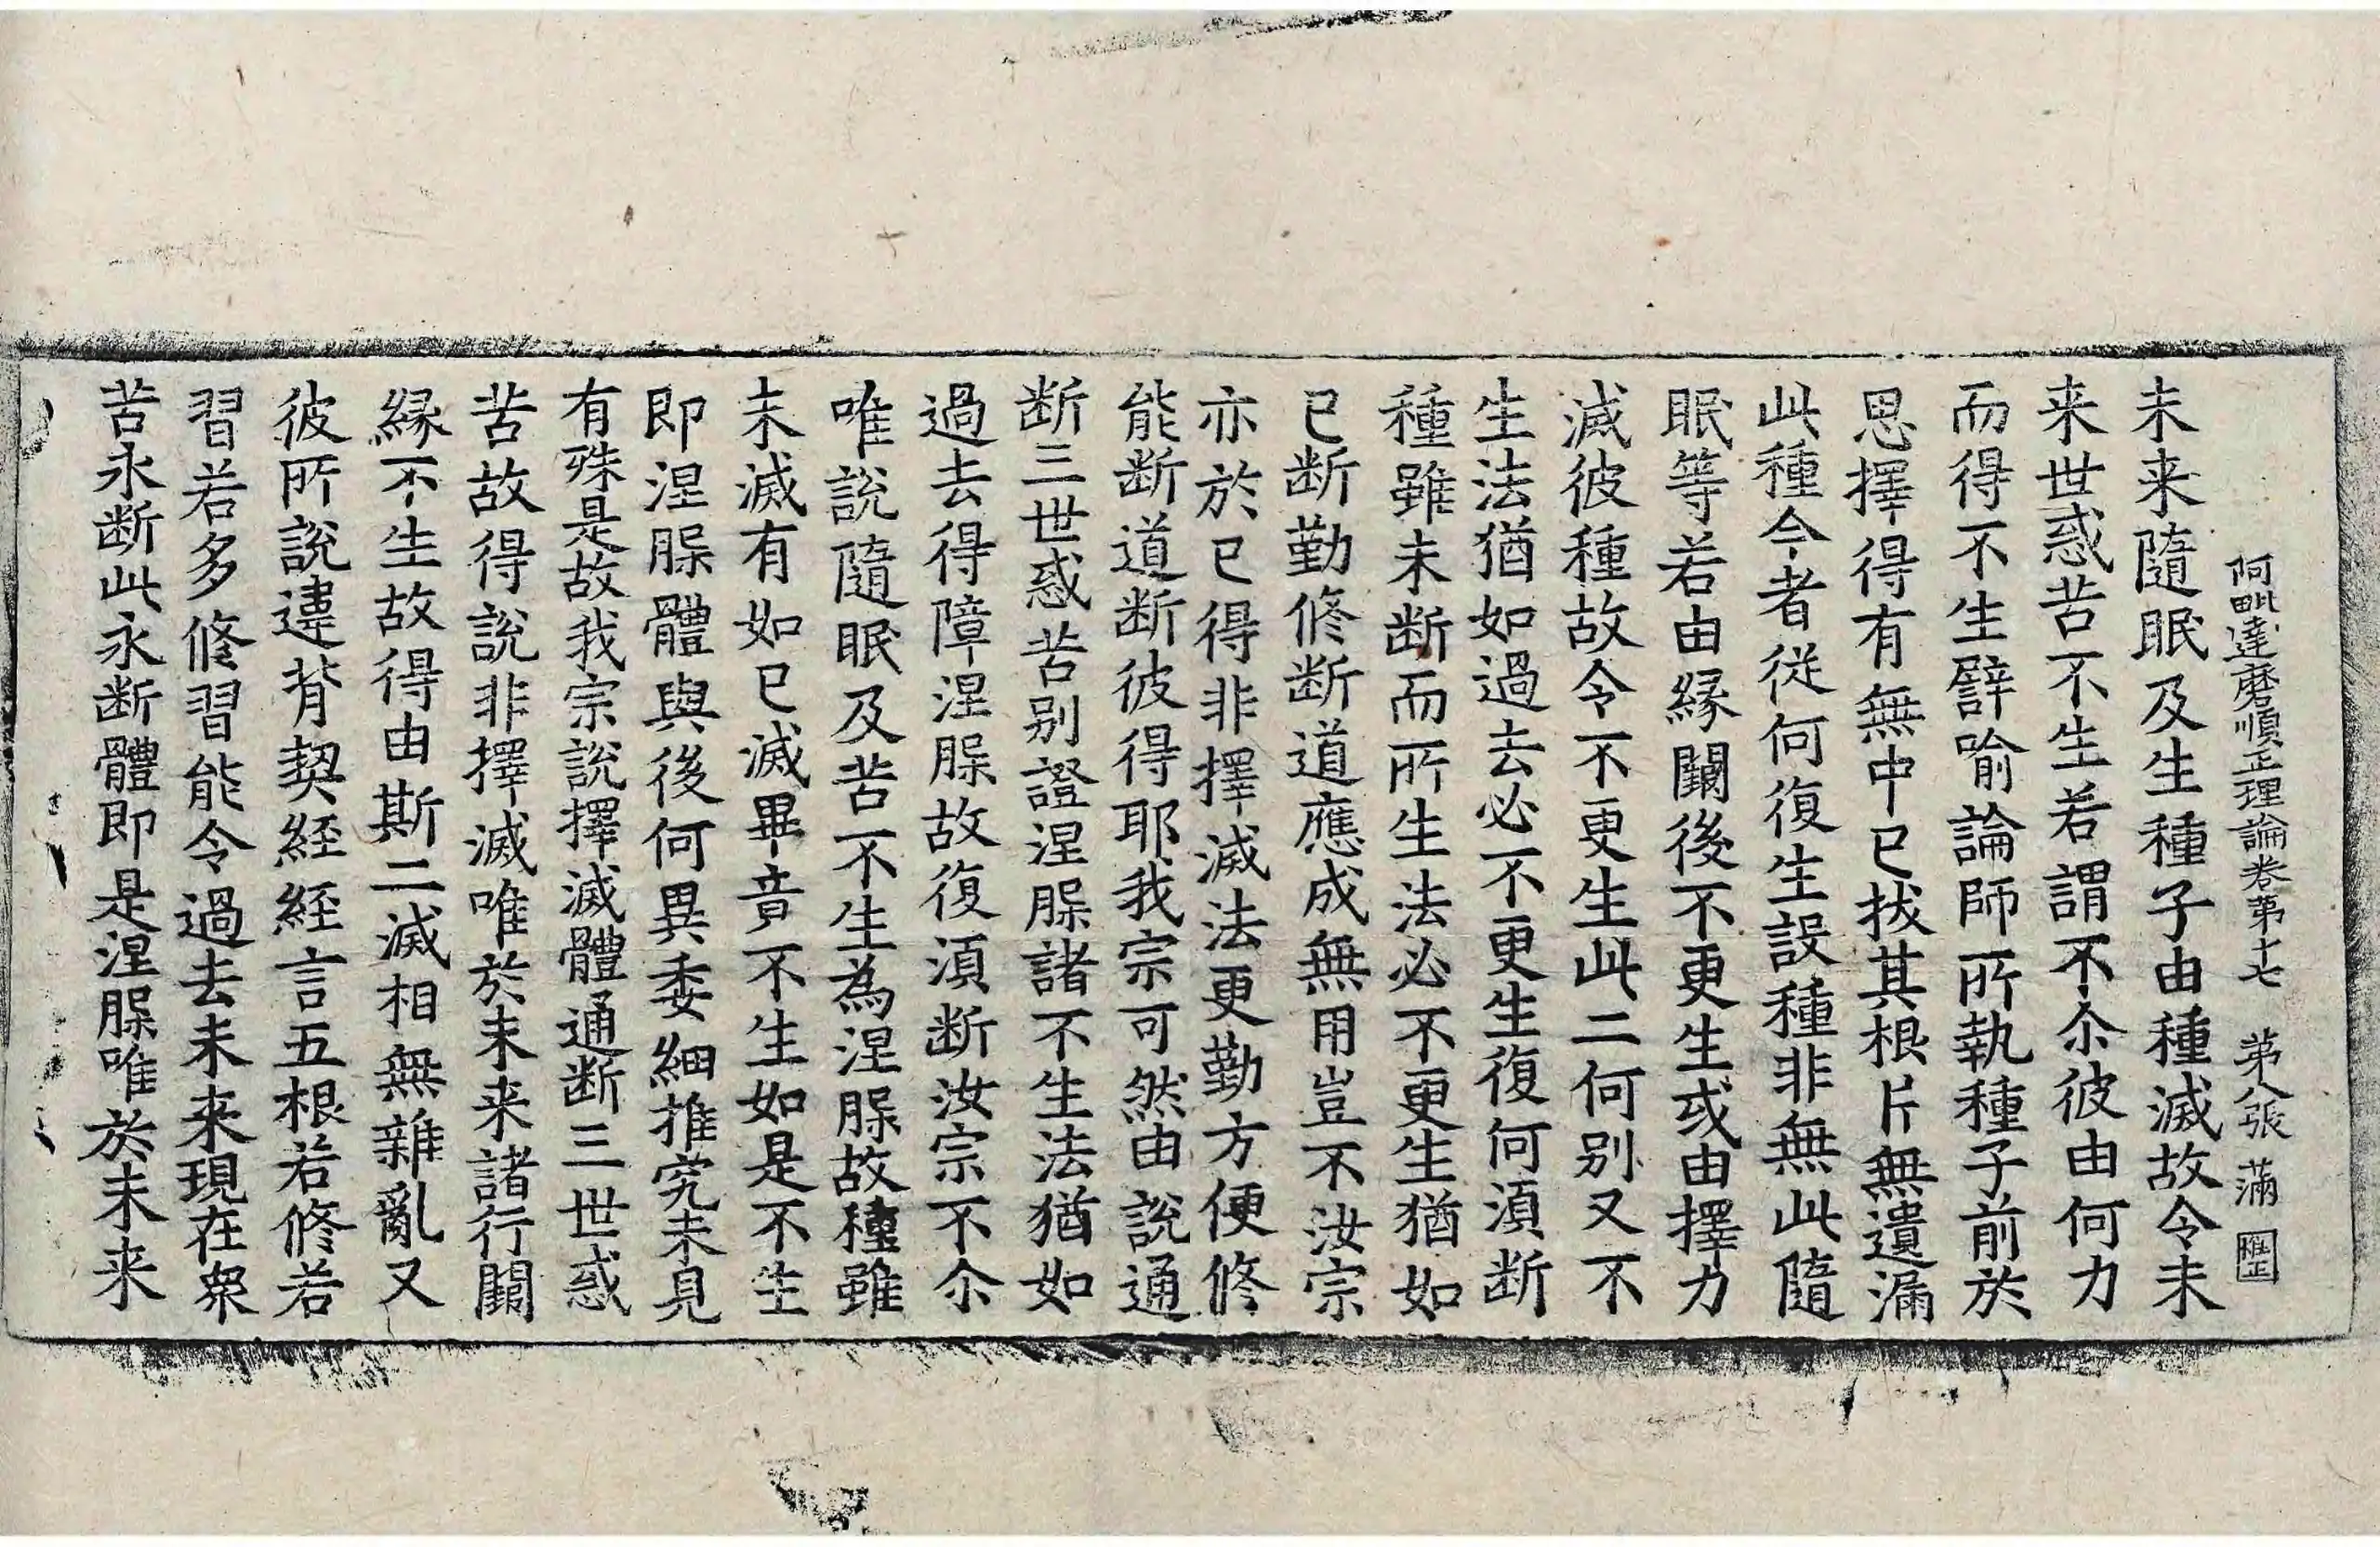 阿毗達磨順正理論卷第十七　第八張　滿
未来隨眠及生種子由種滅故令未
来世惑苦不生若謂不尒彼由何力
而得不生譬喻論師所執種子前於
思擇得有無中已拔其根片無遺漏
此種今者從何復生設種非無此隨
眠等若由緣闕後不更生或由擇力
滅彼種故令不更生此二何別又不
生法猶如過去必不更生復何湏断
種雖未断而所生法必不更生猶如
已断勤修断道應成無用豈不汝宗
亦於已得非擇滅法更勤方便修
能断道断彼得耶我宗可然由說通
断三世惑苦別證涅槃諸不生法猶如
過去得障涅槃故復湏断汝宗不尒
唯說隨眠及苦不生為涅槃故種雖
未滅有如已滅畢竟不生如是不生
即涅槃體與後何異委細推究未見
有殊是故我宗說擇滅體通断三世惑
苦故得說非擇滅唯於未来諸行闕
緣不生故得由斯二滅相無雜亂又
彼所說違背契経経言五根若修若
習若多修習能令過去未来現在衆
苦永断此永断體即是涅槃唯於未来